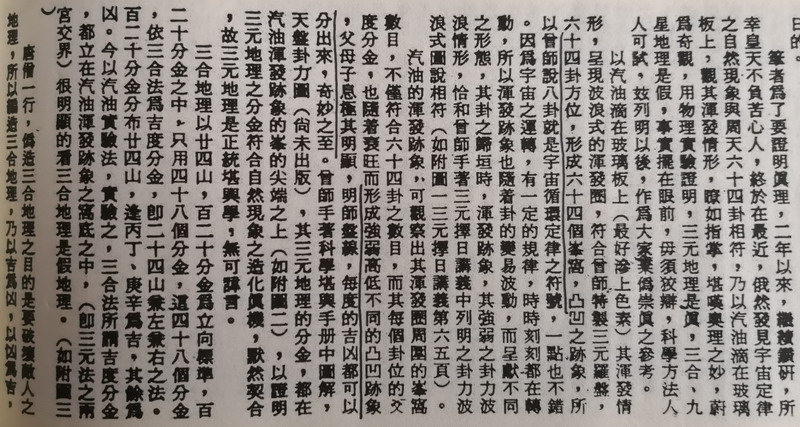 目的。
筆者爲了要證明眞理，二年以來，繼續鑽研，所
幸皇天不負苦心人，終於在最近，俄然發見宇宙定律
之自然現象與周天六十四卦相符，乃以汽油滴在玻璃
板上，觀其渾發情形，瞭如指掌，堪嘆奧理之妙，蔚
爲奇觀，用物理實驗證明，三元地理是眞，三合、九
星地理是假，事實擺在眼前，毋須狡辯，科學方法人
人可試，茲列明以後，作爲大家棄僞崇眞之參考。
以汽油滴在玻璃板上（最好滲上色素）其渾發情
形，呈現波浪式的渾發圈，符合曾師特製三元羅盤，
六十四卦方位，形成六十四個峯窩，凸凹之跡象，所
以曾師說八卦就是宇宙循環定律之符號，一點也不錯
。因爲宇宙之運轉，有一定的規律，時時刻刻都在轉
動，所以渾發跡象也隨着卦的變易波動，而呈獻不同
之形態，其卦之歸垣時，渾發跡象，其強弱之卦力波
浪情形，恰和曾師手著三元擇日講義中列明之卦力波
浪式圖說相符（如附圖一三元擇日講義第六五頁）。
汽油的渾發跡象，可觀察出其渾發圈周圍的峯窩
數目，不僅符合六十四卦之數目，而其每個卦位的爻
度分金，也隨着衰旺而形成強弱高低不同的凸凹跡象
，父母子息極其明顯，明師盤線，每度的吉凶都可以
分出來，奇妙之至。曾師手著科學堪輿手册中圖解，
天盤卦力圖（尙未出版），其三元地理的分金，都在
汽油渾發跡象的峯的尖端之上（如附圖二），以證明
三元地理之分金符合自然現象之造化眞機，默然契合
，故三元地理是正統堪輿學，無可諱言。
三合地理以廿四山，百二十分金爲立向標準，百
二十分金之中，只用四十八個分金，這四十八個分金
，依三合法爲吉度分金，卽二十四山兼左兼右之法。
百二十分金分布廿四山，逢丙丁、庚辛爲吉，其餘爲
凶。今以汽油實驗法，實驗之，三合法所謂吉度分金
，都立在汽油渾發跡象之窩底之中，（卽三元法之兩
宮交界）很明顯的看三合地理是假地理。（如附圖三
唐僧一行，僞造三合地理之目的是要破壞敵人之
地理，所以僞造三合地理，乃以吉爲凶，以凶爲吉，